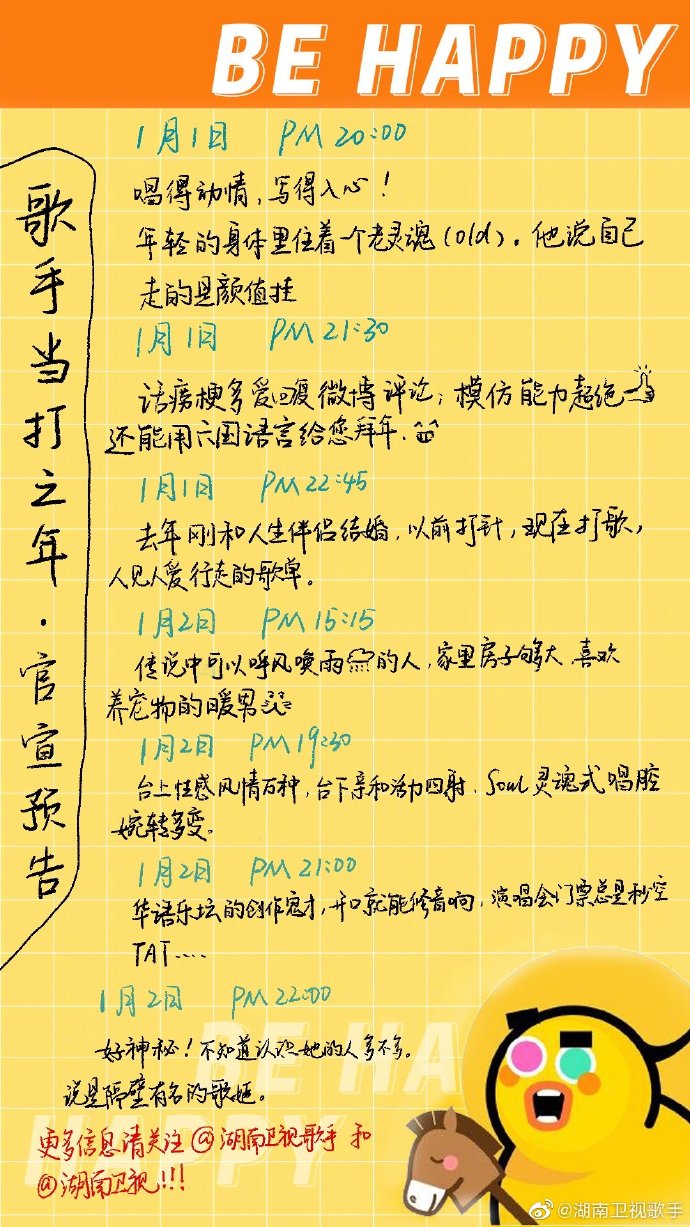 BE HAPPY
歌手当打之年·官宣预告
1月1日 PM 20:00
唱得动情，写得入心！
年轻的身体里住着一个老灵魂（old）。他说自己
走的是颜值挂
1月1日 PM 21:30
话痨梗多爱回复微博评论；模仿能力超绝
还能用六国语言给您拜年.
1月1日 PM 22:45
去年刚和人生伴侣结婚，以前打针，现在打歌，
人见人爱行走的歌单。
1月2日 PM 15:15
传说中可以呼风唤雨的人，家里房子够大，喜欢
养宠物的暖男
1月2日 PM 19:30
台上性感风情万种，台下亲和活力四射. Soul灵魂式唱腔
婉转多变。
1月2日 PM 21:00
华语乐坛的创作鬼才，开口就能修音响，演唱会门票总是秒空
TAT.....
1月2日 PM 22:00
好神秘！不知道认识她的人多不多。
说是隔壁有名的歌姬。
更多信息请关注@湖南卫视歌手 和
@湖南卫视!!!
BE HA
HAPPY
@湖南卫视歌手